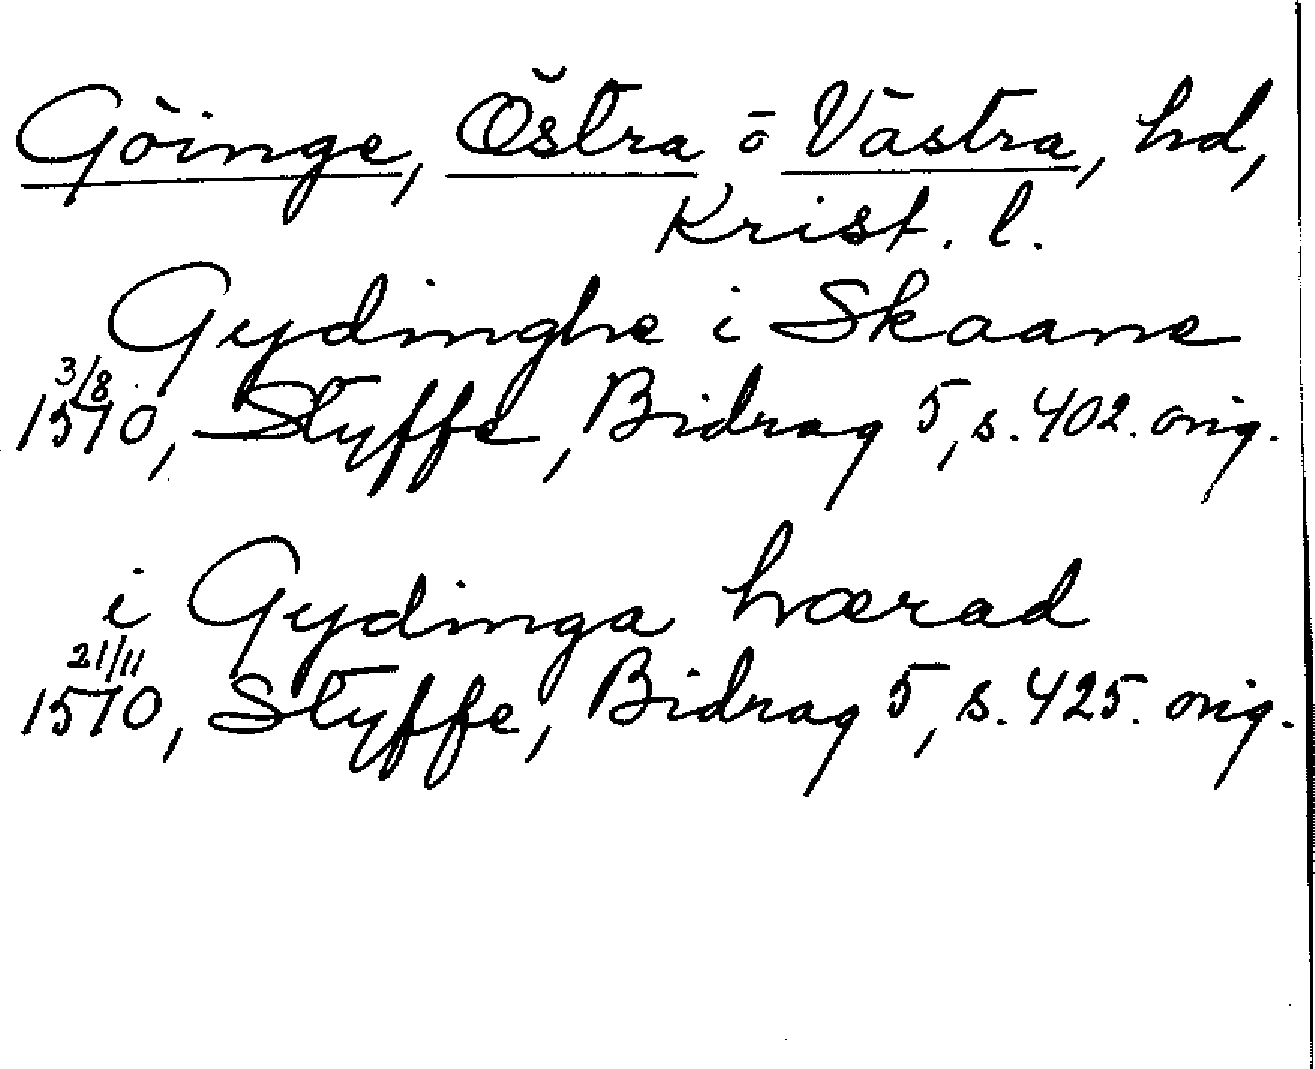 Göinge, Östra o Västra, hd,
Krist. l.
Gydinghe i Skaane
3/8
1510, Styffe, Bidrag 5, s. 402. orig.
i Gydinga hærad
21/11
1510, Styffe, Bidrag 5, s. 425. orig.